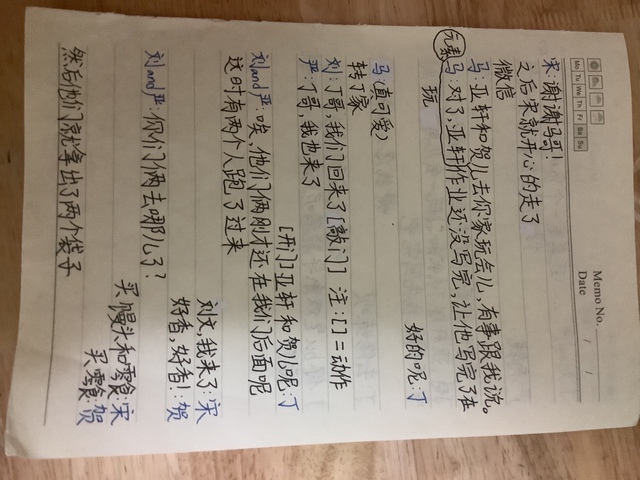 Memo No. / /
Date / /
Mo Tu We Th Fr Sa Su
宋:谢谢马哥!
之后宋就开心的走了
微信
马:亚轩和贺儿去你家玩会儿,有事跟我说。
马:对了,亚轩作业还没写完,让他写完了在
玩
好的呢:丁
马(真可爱)
转丁家
刘:丁哥,我们回来了[敲门] 注:[]=动作
严:丁哥,我也来了
[开门]亚轩和贺儿呢:丁
刘and严:唉,他们俩刚才还在我们后面呢
这时有两个人跑了过来
刘文,我来了:宋
好香,好香!:贺
刘and严:你们俩去哪儿了?
买馒头和零食:宋
买零食:贺
然后他们就拿出了两个袋子